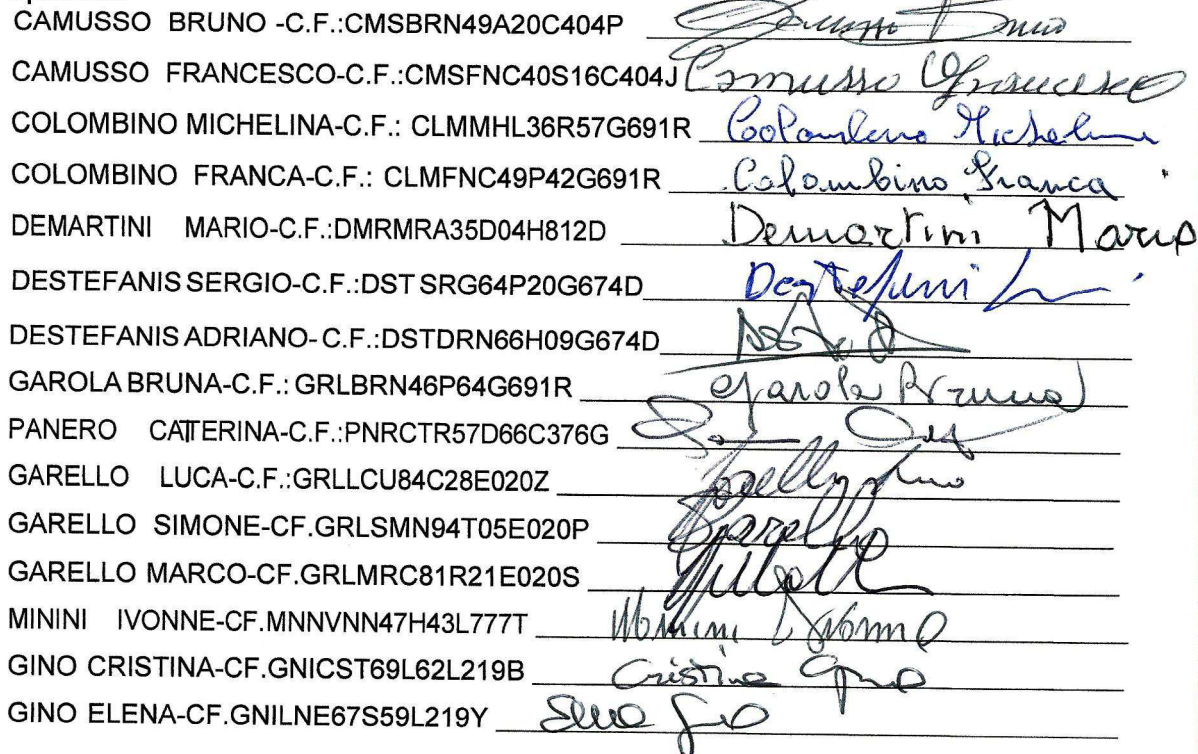 CAMUSSO BRUNO -C.F.:CMSBRN49A20C404P
CAMUSSO FRANCESCO-C.F.:CMSFNC40S16C404J Camusso Francesco
COLOMBINO MICHELINA-C.F.: CLMMHL36R57G691R Michelina
COLOMBINO FRANCA-C.F.: CLMFNC49P42G691R Colombino Franca
DEMARTINI MARIO-C.F.:DMRMRA35D04H812D Demartini Mario
DESTEFANIS SERGIO-C.F.:DST SRG64P20G674D
DESTEFANIS ADRIANO- C.F.:DSTDRN66H09G674D
GAROLA BRUNA-C.F.: GRLBRN46P64G691R Garola Bruna
PANERO CATTERINA-C.F.:PNRCTR57D66C376G
GARELLO LUCA-C.F.:GRLLCU84C28E020Z
GARELLO SIMONE-CF.GRLSMN94T05E020P
GARELLO MARCO-CF.GRLMRC81R21E020S
MININI IVONNE-CF.MNNVNN47H43L777T Minini Ivonne
GINO CRISTINA-CF.GNICST69L62L219B Cristina Gino
GINO ELENA-CF.GNILNE67S59L219Y